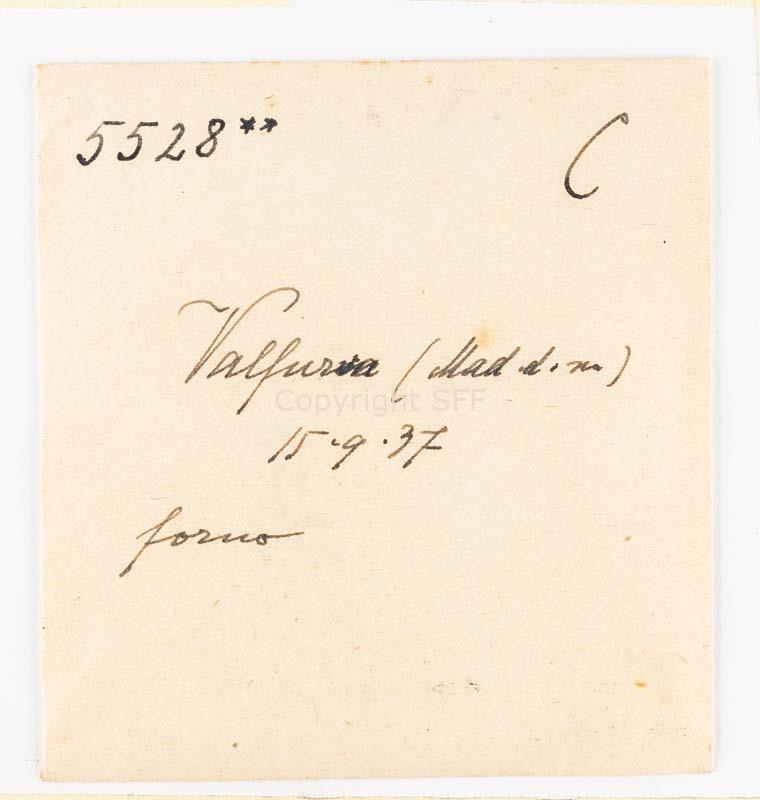 5528** C
Valfurva (Mad.d.m.)
Copyright SFF
15.9.37
forno